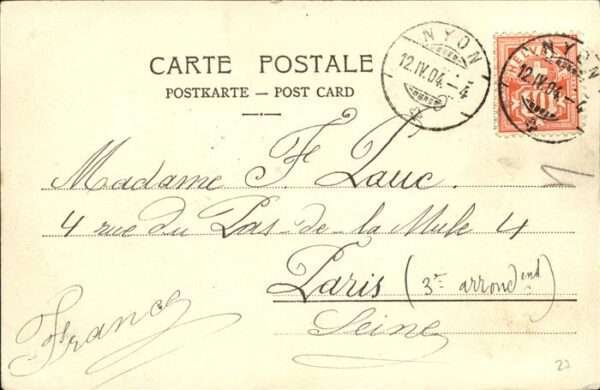 CARTE POSTALE
POSTKARTE — POST CARD
NYON
12.IV.04.-4
NYON
12.IV.04.-4
HELVETIA
10
Madame F. Lauc.
4 rue du Pas-de-la Mule 4
Paris (3e arrondind)
Seine
France